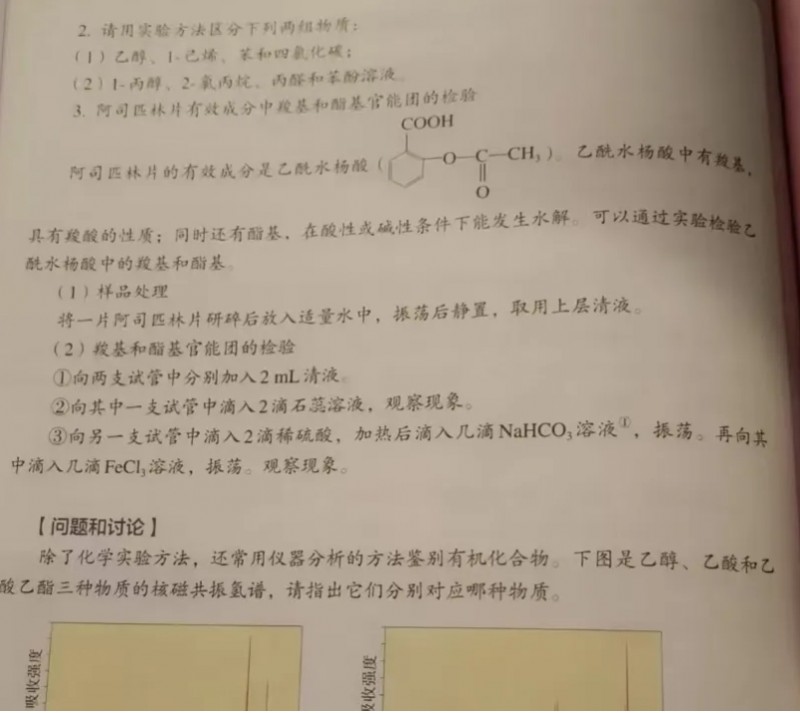 2. 请用实验方法区分下列两组物质：
（1）乙醇、1-己烯、苯和四氯化碳；
（2）1-丙醇、2-氯丙烷、丙醛和苯酚溶液。
3. 阿司匹林片有效成分中羧基和酯基官能团的检验
COOH
阿司匹林片的有效成分是乙酰水杨酸（ —O—C—CH₃ ）。乙酰水杨酸中有羧基，
O
具有羧酸的性质；同时还有酯基，在酸性或碱性条件下能发生水解。可以通过实验检验乙
酰水杨酸中的羧基和酯基。
（1）样品处理
将一片阿司匹林片研碎后放入适量水中，振荡后静置，取用上层清液。
（2）羧基和酯基官能团的检验
①向两支试管中分别加入2 mL清液。
②向其中一支试管中滴入2滴石蕊溶液，观察现象。
③向另一支试管中滴入2滴稀硫酸，加热后滴入几滴NaHCO₃溶液①，振荡。再向其
中滴入几滴FeCl₃溶液，振荡。观察现象。
【问题和讨论】
除了化学实验方法，还常用仪器分析的方法鉴别有机化合物。下图是乙醇、乙酸和乙
酸乙酯三种物质的核磁共振氢谱，请指出它们分别对应哪种物质。
吸收强度
吸收强度